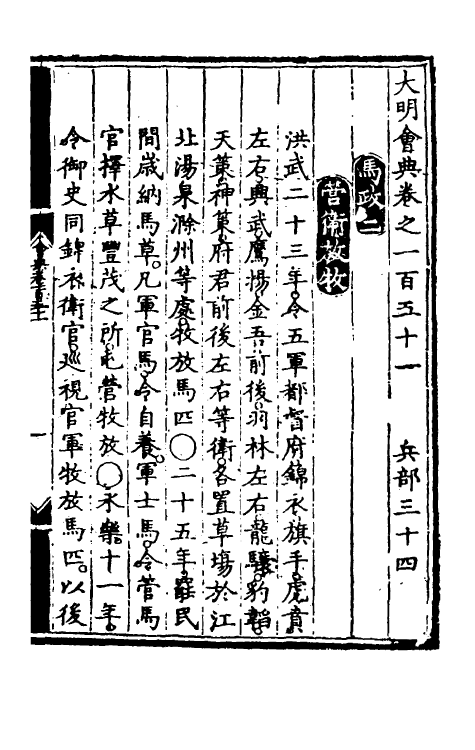 大明會典卷之一百五十一　兵部三十四
馬政二
營衛放牧
洪武二十三年。令五軍都督府錦衣旗手虎賁
左右興武鷹揚金吾前後。羽林左右龍驤豹韜
天策神策府君前後左右等衛。各置草場於江
北湯泉滁州等處。牧放馬匹〇二十五年。罷民
間歲納馬草。凡軍官馬。令自養。軍士馬。令管馬
官擇水草豐茂之所。屯營牧放〇永樂十一年。
令御史同錦衣衛官。廵視官軍牧放馬匹。以後
一